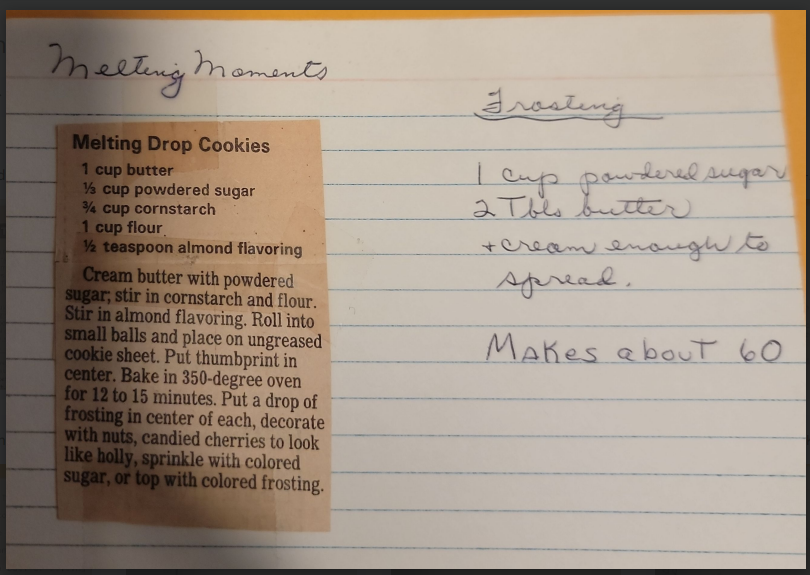 Melting Moments
Melting Drop Cookies
1 cup butter
⅓ cup powdered sugar
¾ cup cornstarch
1 cup flour
½ teaspoon almond flavoring
Cream butter with powdered
sugar; stir in cornstarch and flour.
Stir in almond flavoring. Roll into
small balls and place on ungreased
cookie sheet. Put thumbprint in
center. Bake in 350-degree oven
for 12 to 15 minutes. Put a drop of
frosting in center of each, decorate
with nuts, candied cherries to look
like holly, sprinkle with colored
sugar, or top with colored frosting.
Frosting
1 cup powdered sugar
2 Tbls butter
+ cream enough to
spread.
Makes about 60